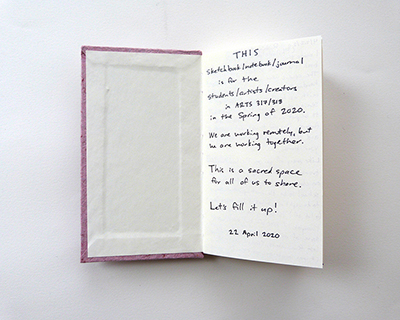 THIS
sketchbook/notebook/journal
is for the
students/artists/creators
in ARTS 317/318
in the Spring of 2020.
We are working remotely, but
we are working together.
This is a sacred space
for all of us to share.
Let's fill it up!
22 April 2020